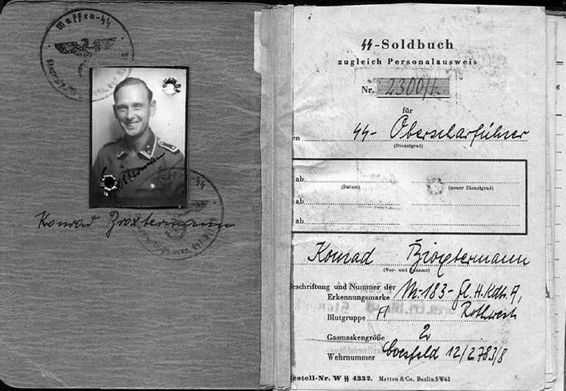 Waffen-SS
Konrad
SS-Soldbuch
zugleich Personalausweis
Nr. 2300/1
für
SS- Oberscharführer
(Dienstgrad)
ab
(Datum)
(neuer Dienstgrad)
ab
ab
Konrad
(Vor- und Zuname)
Beschriftung und Nummer der
Erkennungsmarke M-183-
Blutgruppe A Rothwest
Gasmaskengröße 2
Wehrnummer Coesfeld 12/2783/8
Bestell-Nr. W SS 4332. Metten & Co. Berlin SW 61